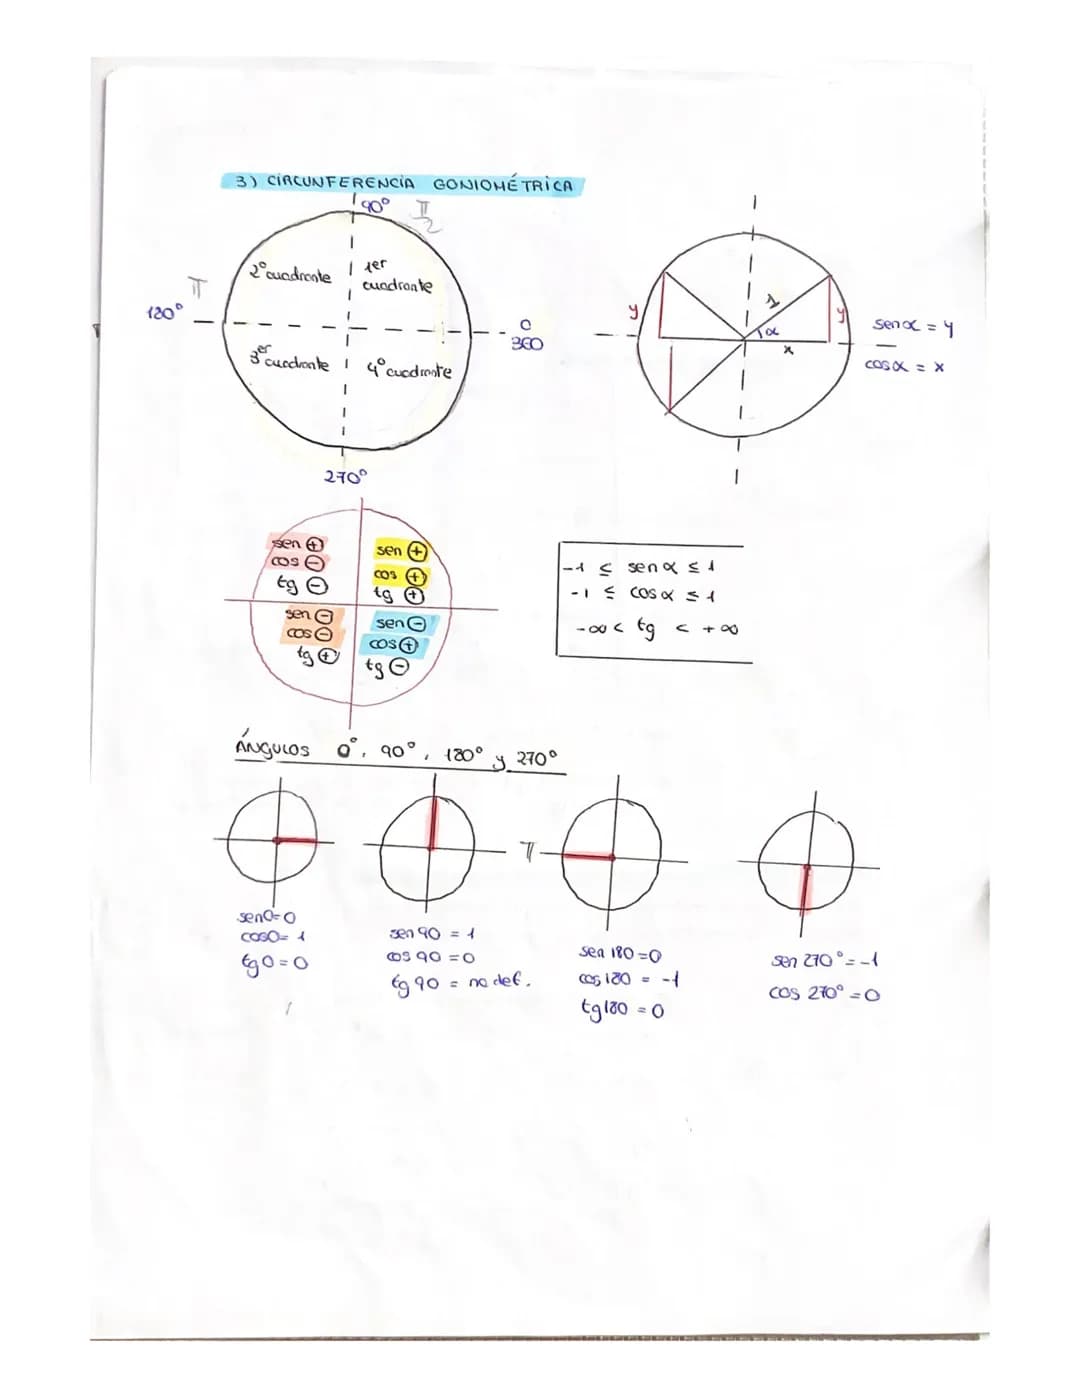 3) CIRCUNFERENCIA GONIOMÉTRICA
90° π/2
2° cuadrante
1er cuadrante
π
180°
0
360
3er cuadrante
4° cuadrante
270°
y
1
α
x
y
sen α = y
cos α = x
sen ⊕
cos ⊖
tg ⊖
sen ⊕
cos ⊕
tg ⊕
sen ⊖
cos ⊖
tg ⊕
sen ⊖
cos ⊕
tg ⊖
-1 ≤ sen α ≤ 1
-1 ≤ cos α ≤ 1
-∞ < tg < +∞
ÁNGULOS 0°, 90°, 180° y 270°
sen0=0
cos0= 1
tg0=0
sen 90 = 1
cos 90 =0
tg 90 = no def.
π
sen 180=0
cos 180 = -1
tg180 = 0
sen 270°=-1
cos 270°=0